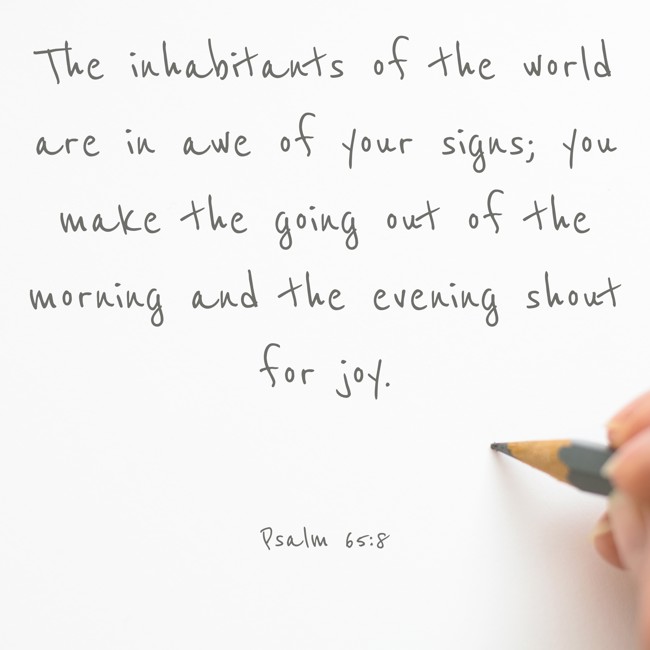 The inhabitants of the world
are in awe of your signs; you
make the going out of the
morning and the evening shout
for joy.
Psalm 65:8